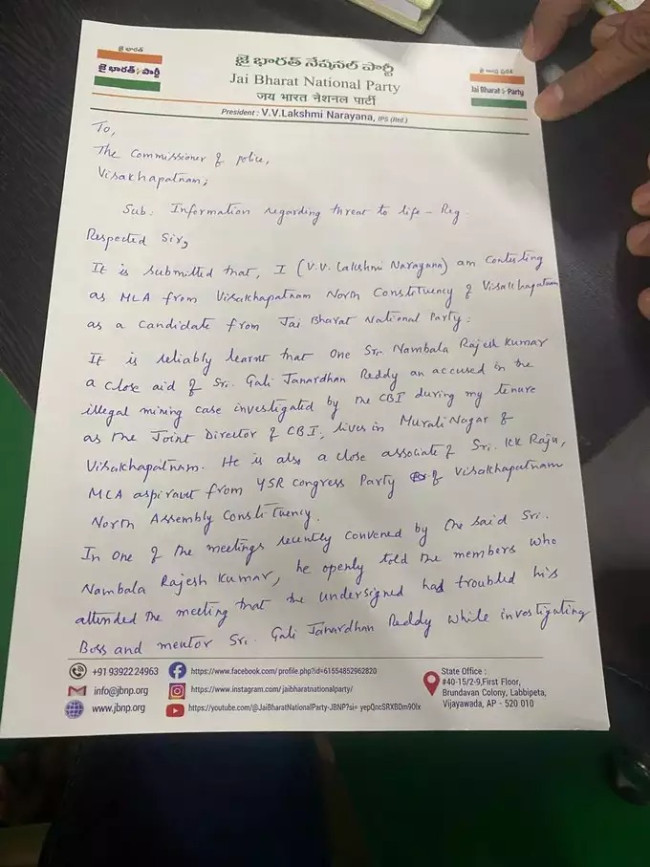 జై భారత్
జై భారత్ పార్టీ
జై భారత్ నేషనల్ పార్టీ
Jai Bharat National Party
जय भारत नेशनल पार्टी
Jai Bharat Party
President : V.V.Lakshmi Narayana, IPS (Retd.)
To,
The Commissioner of police,
Visakhapatnam;
Sub: Information regarding threat to life - Reg
Respected Sir,
It is submitted that, I (V.V. Lakshmi Narayana) am contesting
as MLA from Visakhapatnam North Constituency of Visakhapatnam
as a candidate from Jai Bharat National Party.
It is reliably learnt that one Sri Nambala Rajesh Kumar
a close aid of Sri. Gali Janardhan Reddy an accused in the
illegal mining case investigated by the CBI during my tenure
as the Joint Director of CBI, lives in Murali Nagar of
Visakhapatnam. He is also a close associate of Sri. KK Raju,
MLA aspirant from YSR Congress Party of Visakhapatnam
North Assembly Constituency.
In one of the meetings recently convened by the said Sri.
Nambala Rajesh Kumar, he openly told the members who
attended the meeting that the undersigned had troubled his
Boss and mentor Sri. Gali Janardhan Reddy while investigating
+91 93922 24963
https://www.facebook.com/profile.php?id=61554852962820
info@jbnp.org
https://www.instagram.com/jaibharatnationalparty/
www.jbnp.org
State Office :
#40-15/2-9,First Floor,
Brundavan Colony, Labbipeta,
Vijayawada, AP - 520 010